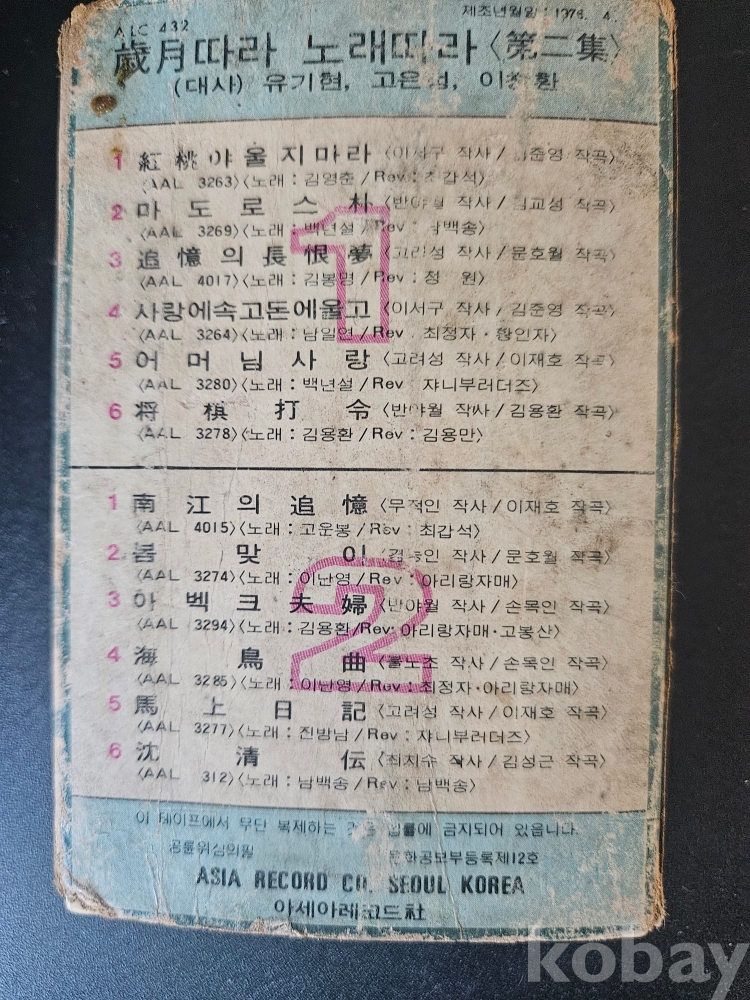 ALC 432
제조년월일 : 1976. 4.
歲月따라 노래따라〈第二集〉
(대사) 유기현, 고은정, 이창환
1 紅桃야울지마라〈이서구 작사/김준영 작곡〉
〈AAL 3263〉〈노래:김영춘/Rev:최갑석〉
2 마도로스朴〈반야월 작사/김교성 작곡〉
〈AAL 3269〉〈노래:백년설/Rev:남백송〉
3 追憶의長恨夢〈고려성 작사/문호월 작곡〉
〈AAL 4017〉〈노래:김봉명/Rev:정 원〉
4 사랑에속고돈에울고〈이서구 작사/김준영 작곡〉
〈AAL 3264〉〈노래:남일연/Rev:최정자·황인자〉
5 어머님사랑〈고려성 작사/이재호 작곡〉
〈AAL 3280〉〈노래:백년설/Rev:쟈니부러더즈〉
6 将棋打令〈반야월 작사/김용환 작곡〉
〈AAL 3278〉〈노래:김용환/Rev:김용만〉
1
1 南江의追憶〈무적인 작사/이재호 작곡〉
〈AAL 4015〉〈노래:고운봉/Rev:최갑석〉
2 봄맞이〈작사/문호월 작곡〉
〈AAL 3274〉〈노래:이난영/Rev:아리랑자매〉
3 아벡크夫婦〈반야월 작사/손목인 작곡〉
〈AAL 3294〉〈노래:김용환/Rev:아리랑자매·고봉산〉
4 海鳥曲〈불노초 작사/손목인 작곡〉
〈AAL 3285〉〈노래:이난영/Rev:최정자·아리랑자매〉
5 馬上日記〈고려성 작사/이재호 작곡〉
〈AAL 3277〉〈노래:진방남/Rev:쟈니부러더즈〉
6 沈清伝〈최지수 작사/김성근 작곡〉
〈AAL 312〉〈노래:남백송/Rev:남백송〉
2
이 테이프에서 무단 복제하는 것을 법률에 금지되어 있읍니다.
공륜위심의필 문화공보부등록제12호
ASIA RECORD CO. SEOUL KOREA
아세아레코드社
kobay